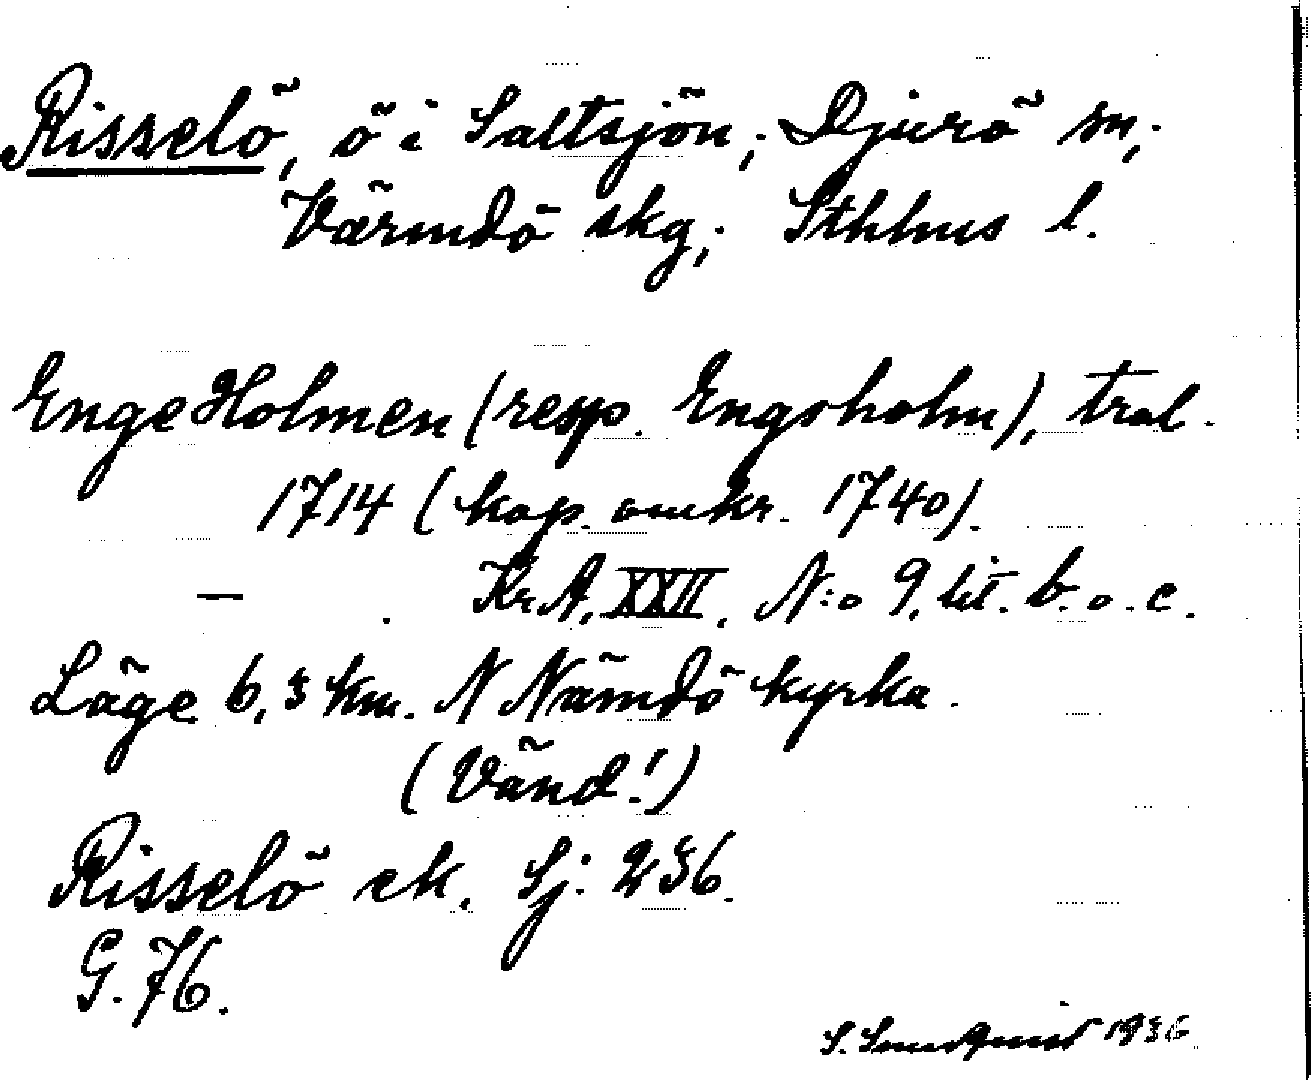 Risselö, ö i Saltsjön; Djurö sn;
Värmdö skg; Sthlms l.
EngeHolmen (resp. Engsholm), tral.
1714 (kop. omkr. 1740).
— . Kr.A. XXII. N:o 9. lit. b. o. c.
Läge 6,3 km. N Nämdö kyrka.
(Vänd!)
Risselö ek. Sj: 236.
G. 76.
S. 1936